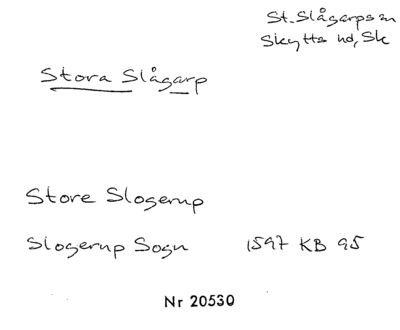 St. Slågarps sn
Skytts hd, Sk
Stora Slågarp
Store Slogerup
Slogerup Sogn 1597 KB 95
Nr 20530